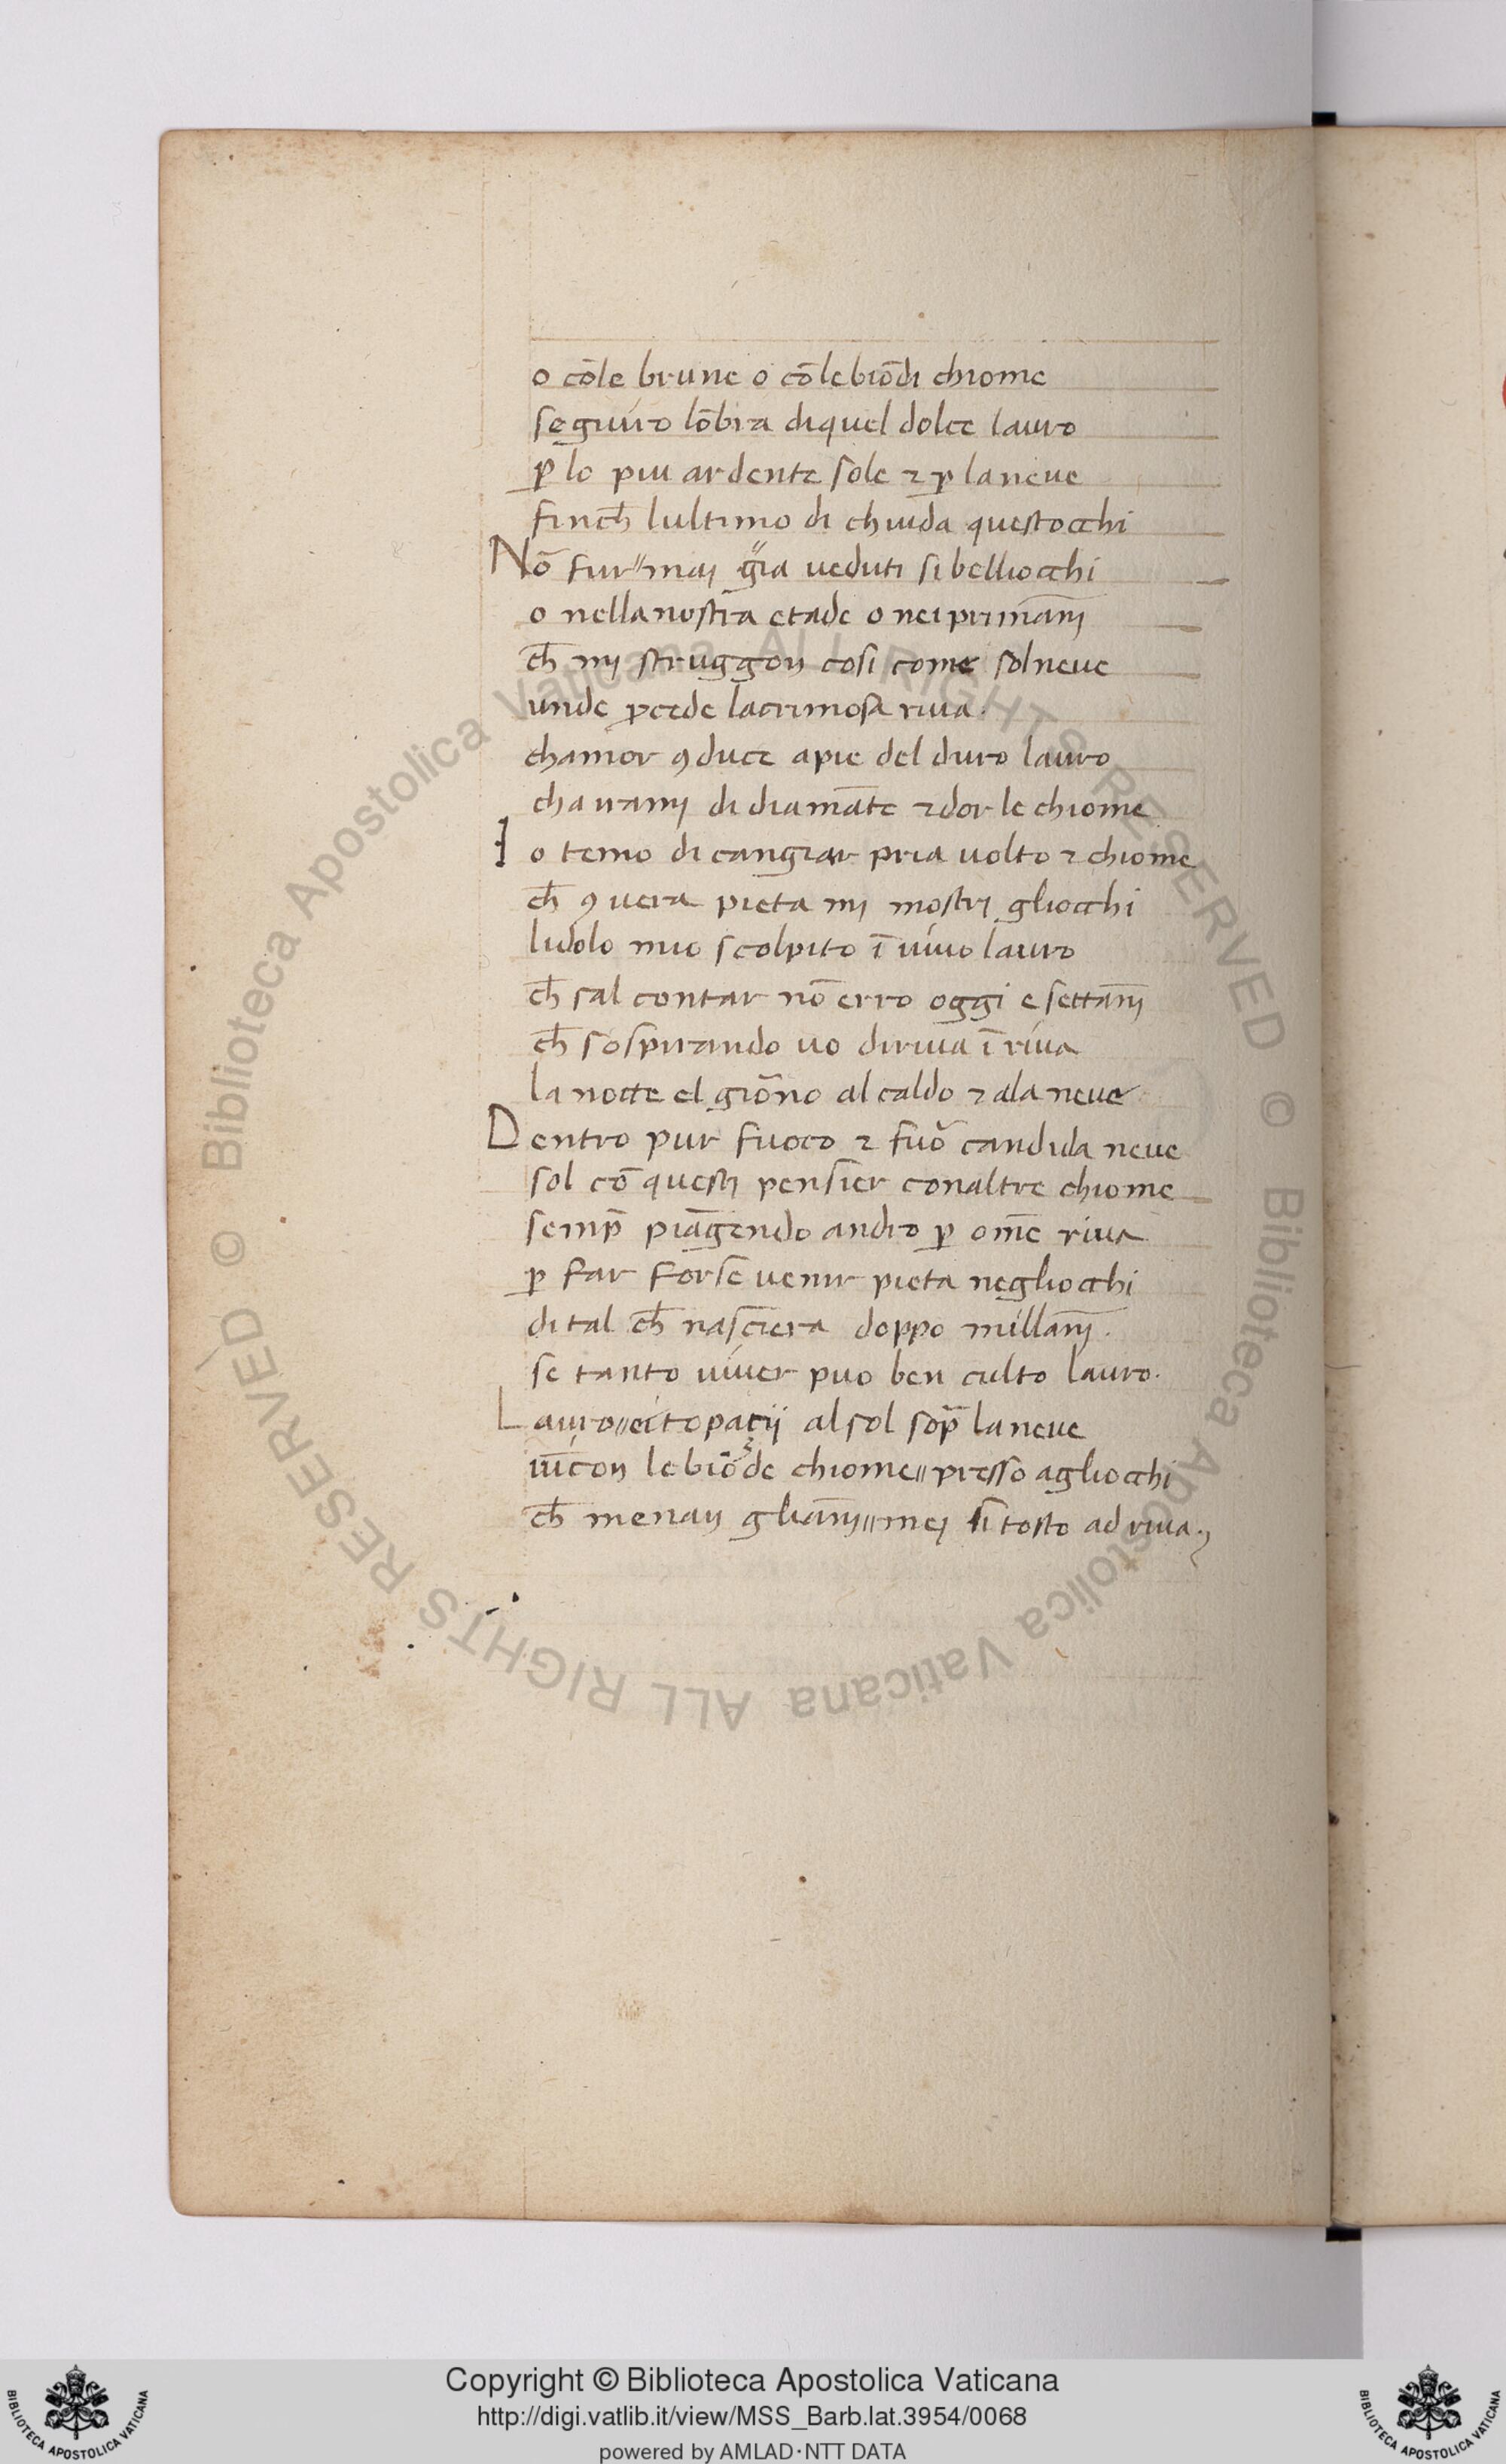 o cōle brune o cōlebiōdi chiome
seguiro lōbra diquel dolce lauro
ꝑ lo piu ardente sole ⁊ ꝑ laneue
finch̄ lultimo di chiuda questocchi
Nō fur〃mai 〃gia ueduti si belliocchi
o nellanostra etade o neiprimiān̄j
ch̄ mj struggon cosi come solneue
unde ꝓcede lacrimosa riua.
chamor ꝯduce apie del duro lauro
cha iramj di diamāte ⁊dor le chiome
I o temo di cangiar pria uolto ⁊ chiome
ch̄ ꝯ uera pieta mj mostrj gliocchi
lidolo mio scolpito ī uiuo lauro
ch̄ sal contar nō erro oggi e settān̄j
ch̄ sospirando uo diriua ī riua
la nocte el giōno al caldo ⁊ ala neue
Dentro pur fuoco ⁊ fuō candida neue
sol cō questj pensier conaltre chiome
semp̄ piāgendo andro ꝑ om̄e riua
ꝑ far forse uenir pieta negliocchi
di tal ch̄ nasciera doppo millān̄j.
se tanto uiuer puo ben culto lauro.
Lauro〃ei topacij al sol sop̄ laneue
uīcon le biōde chiome〃presso agliocchi
ch̄ menan gliān̄j〃mei si tosto ad riua.
© Biblioteca Apostolica Vaticana ALL RIGHTS RESERVED © Biblioteca Apostolica Vaticana ALL RIGHTS RESERVED
Copyright © Biblioteca Apostolica Vaticana
http://digi.vatlib.it/view/MSS_Barb.lat.3954/0068
powered by AMLAD·NTT DATA
BIBLIOTECA APOSTOLICA VATICANA
BIBLIOTECA APOSTOLICA VATICANA